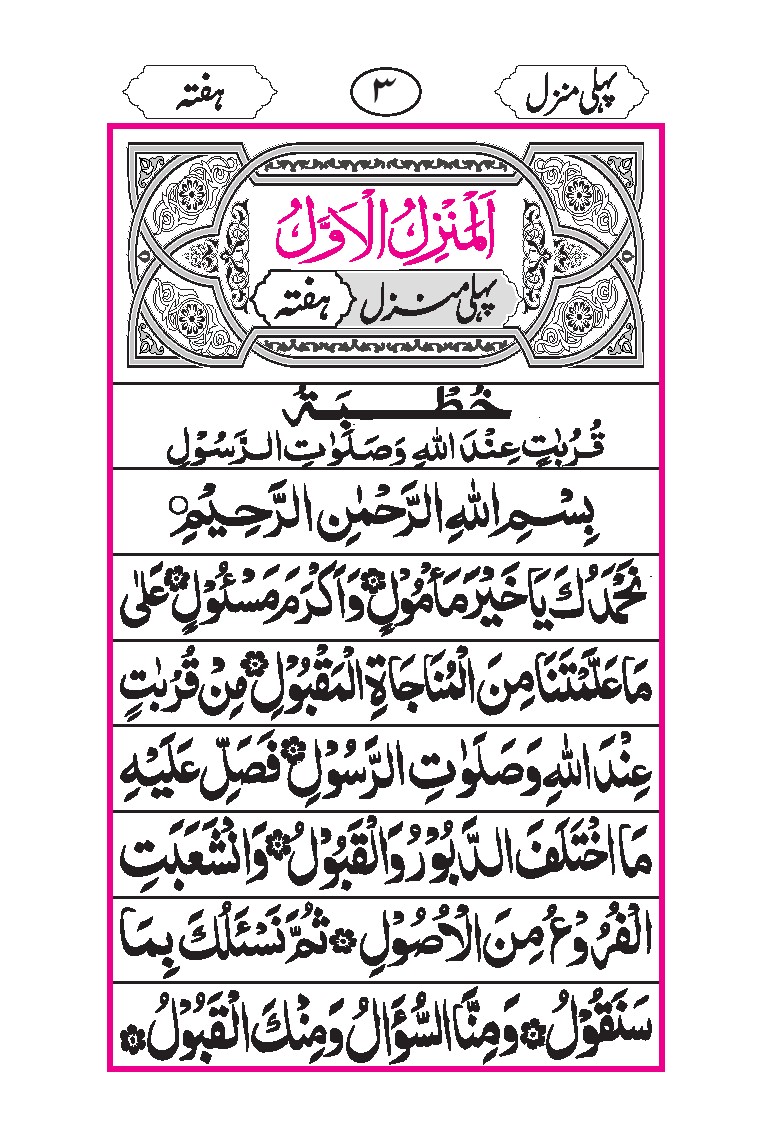 پہلی منزل
۳
ہفتہ
اَلْمَنْزِلُ الْاَوَّلُ
پہلی منزل ہفتہ
خُطْبَۃُ
قُرُبٰتٍ عِنْدَ اللّٰهِ وَصَلَوٰتِ الرَّسُوْلِ
بِسْمِ اللّٰهِ الرَّحْمٰنِ الرَّحِيْمِ○
نَحْمَدُكَ يَا خَيْرَ مَأْمُوْلٍ۞ وَاَكْرَمَ مَسْئُوْلٍ۞ عَلٰى
مَا عَلَّمْتَنَا مِنَ الْمُنَاجَاةِ الْمَقْبُوْلِ۞ مِنْ قُرُبٰتٍ
عِنْدَ اللّٰهِ وَصَلَوٰتِ الرَّسُوْلِ۞ فَصَلِّ عَلَيْهِ
مَا اخْتَلَفَ الدَّبُوْرُ وَالْقَبُوْلُ۞ وَانْشَعَبَتِ
الْفُرُوْعُ مِنَ الْاُصُوْلِ ۞ ثُمَّ نَسْئَلُكَ بِمَا
سَنَقُوْلُ۞ وَمِنَّا السُّؤَالُ وَمِنْكَ الْقَبُوْلُ۞